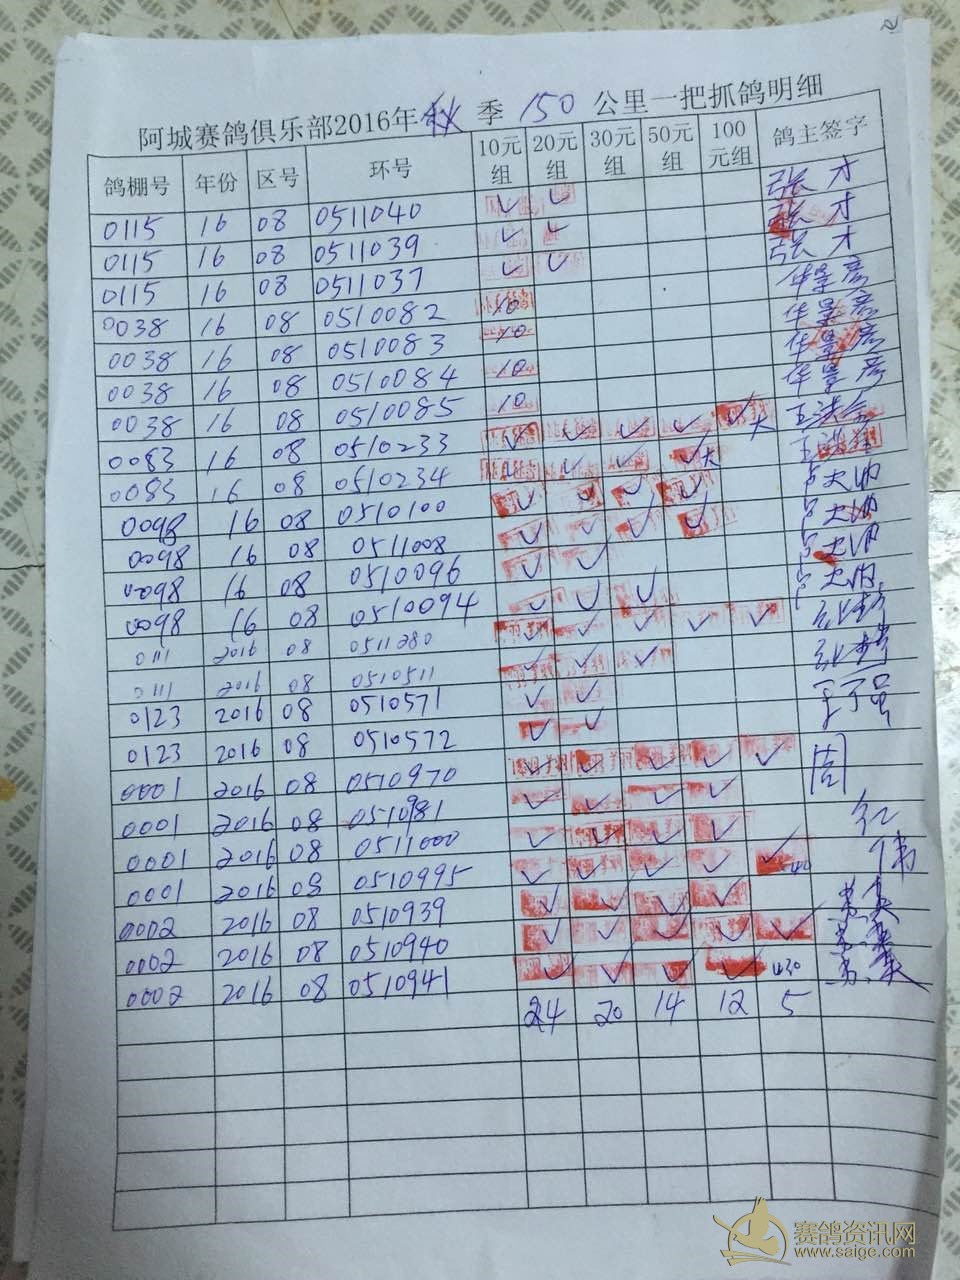 阿城赛鸽俱乐部2016年秋季150公里一把抓鸽明细
鸽棚号 年份 区号 环号 10元组 20元组 30元组 50元组 100元组 鸽主签字
0115 16 08 0511040 ✓ ✓ 张才
0115 16 08 0511039 ✓ ✓ 张才
0115 16 08 0511037 ✓ ✓ 张才
0038 16 08 0510082 10 华景彦
0038 16 08 0510083 10 华景彦
0038 16 08 0510084 10 华景彦
0038 16 08 0510085 10
0083 16 08 0510233 ✓ ✓ ✓ ✓ ✓大
0083 16 08 0510234 ✓ ✓ ✓ ✓大
0098 16 08 0510100 ✓ ✓ ✓ ✓
0098 16 08 0511008 ✓ ✓ ✓ ✓
0098 16 08 0510096 ✓ ✓
0098 16 08 0510094 ✓ ✓ ✓
0111 2016 08 0511280 ✓ ✓ ✓ ✓ ✓
0111 2016 08 0510511 ✓ ✓ ✓
0123 2016 08 0510571 ✓ ✓
0123 2016 08 0510572 ✓ ✓
0001 2016 08 0510970 ✓ ✓ ✓ ✓ ✓ 周
0001 2016 08 0510981 ✓ ✓ ✓ ✓ 红
0001 2016 08 0511000 ✓ ✓ ✓ ✓ 伟
0001 2016 08 0510995 ✓ ✓ ✓ ✓ ✓
0002 2016 08 0510939 ✓ ✓ ✓ ✓
0002 2016 08 0510940 ✓ ✓ ✓ ✓ ✓
0002 2016 08 0510941 ✓ ✓ ✓ ✓
24 20 14 12 5
赛鸽资讯网
www.saige.com